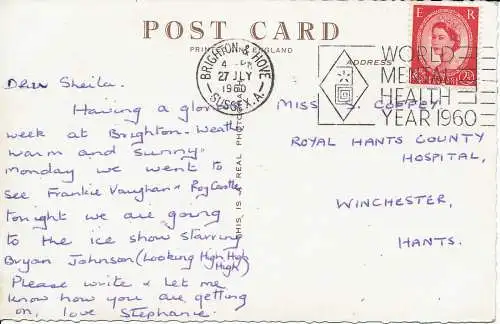 POST CARD
PRINTED IN ENGLAND
ADDRESS
E R
2½D
BRIGHTON & HOVE
4 - PM
27 JLY
1960
SUSSEX. A
WORLD
MENTAL
HEALTH
YEAR 1960
THIS IS A REAL PHOTOGRAPH
Dear Sheila.
Having a glorious
week at Brighton - Weather
warm and sunny
Monday we went to
see Frankie Vaughan & Roy Castle
tonight we are going
to the ice show starring
Bryan Johnson (Looking High High
High)
Please write & let me
know how you are getting
on, love Stephanie.
MISS S. COFFEY
ROYAL HANTS COUNTY
HOSPITAL,
WINCHESTER,
HANTS.